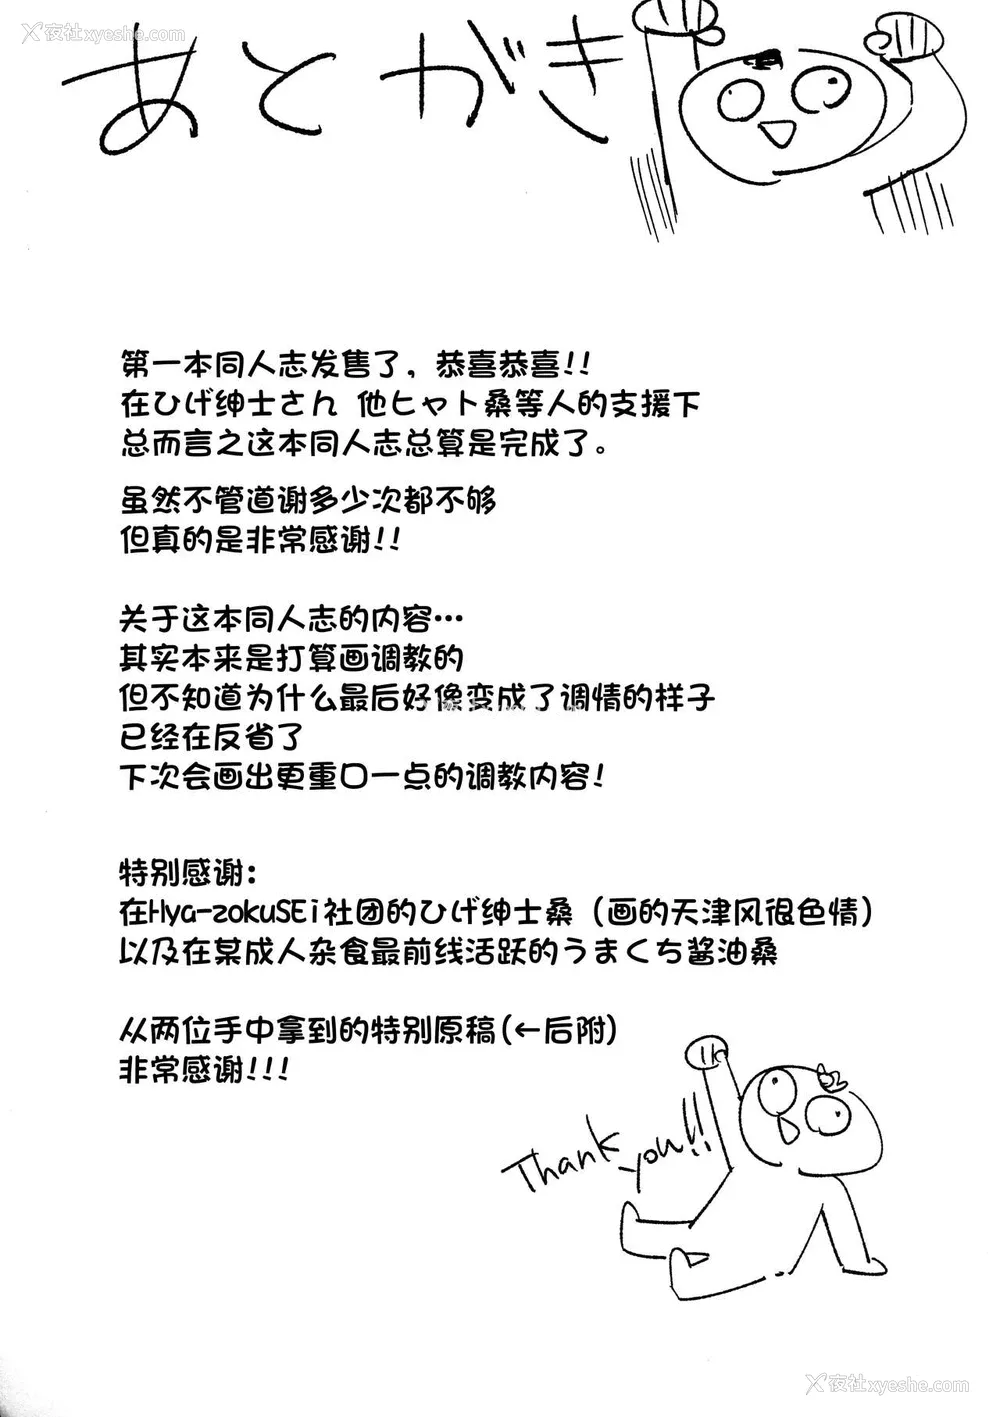 夜社xyeshe.com
夜社xyeshe.com
あとがき
第一本同人志发售了，恭喜恭喜!!
在ひげ绅士さん 他ヒャト桑等人的支援下
总而言之这本同人志总算是完成了。
虽然不管道谢多少次都不够
但真的是非常感谢!!
关于这本同人志的内容…
其实本来是打算画调教的
但不知道为什么最后好像变成了调情的样子
已经在反省了
下次会画出更重口一点的调教内容!
特别感谢:
在Hya-zokuSEi社团的ひげ绅士桑（画的天津风很色情）
以及在某成人杂食最前线活跃的うまくち酱油桑
从两位手中拿到的特别原稿(←后附)
非常感谢!!!
Thank you!!
夜社xyeshe.com